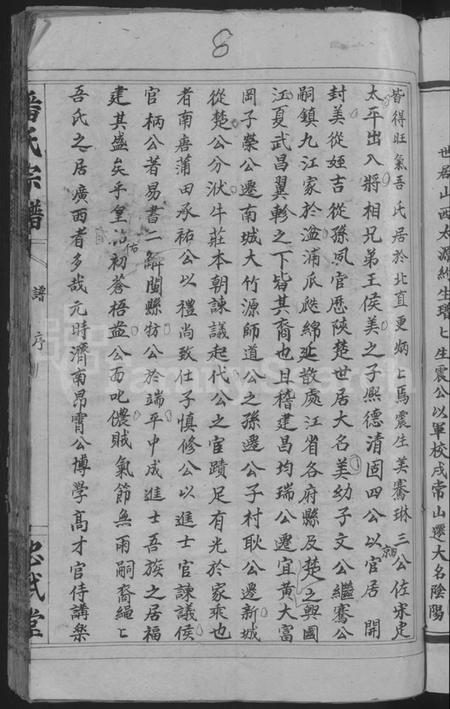 8
世居山西太源約生瓚瓚生震公以軍校戍常山遷大名陰陽
皆得旺氣吾氏居於北直更炳炳焉震生美騫琳三公佐宋定
太平出入將相兄弟王侯美之子熙德清固四公以官居開
封美從姪吉從孫夙官歷陝楚世居大名美幼子文公繼騫公
嗣鎮九江家於湓浦瓜瓞綿延散處江省各府縣及楚之興國
江夏武昌翼軫之下皆其裔也且稽建昌均瑞公遷宜黃大富
岡子榮公遷南城大竹源師道公之孫邊公子村耿公遷新城
從楚公分派牛莊本朝諫議起代公之宦蹟足有光於家乘也
者南唐蒲田承祐公以禮尚致仕子慎修公以進士官諫議侯
官柄公著易書二解閩縣牥公於端平中成進士吾族之居福
建其盛矣乎皇祐初蒼梧益公面叱儂賊氣節無雨嗣裔繩繩
吾氏之居廣西者多哉元時濟南昂霄公博學高才官侍講樂
潘氏宗譜
譜序
忠武堂